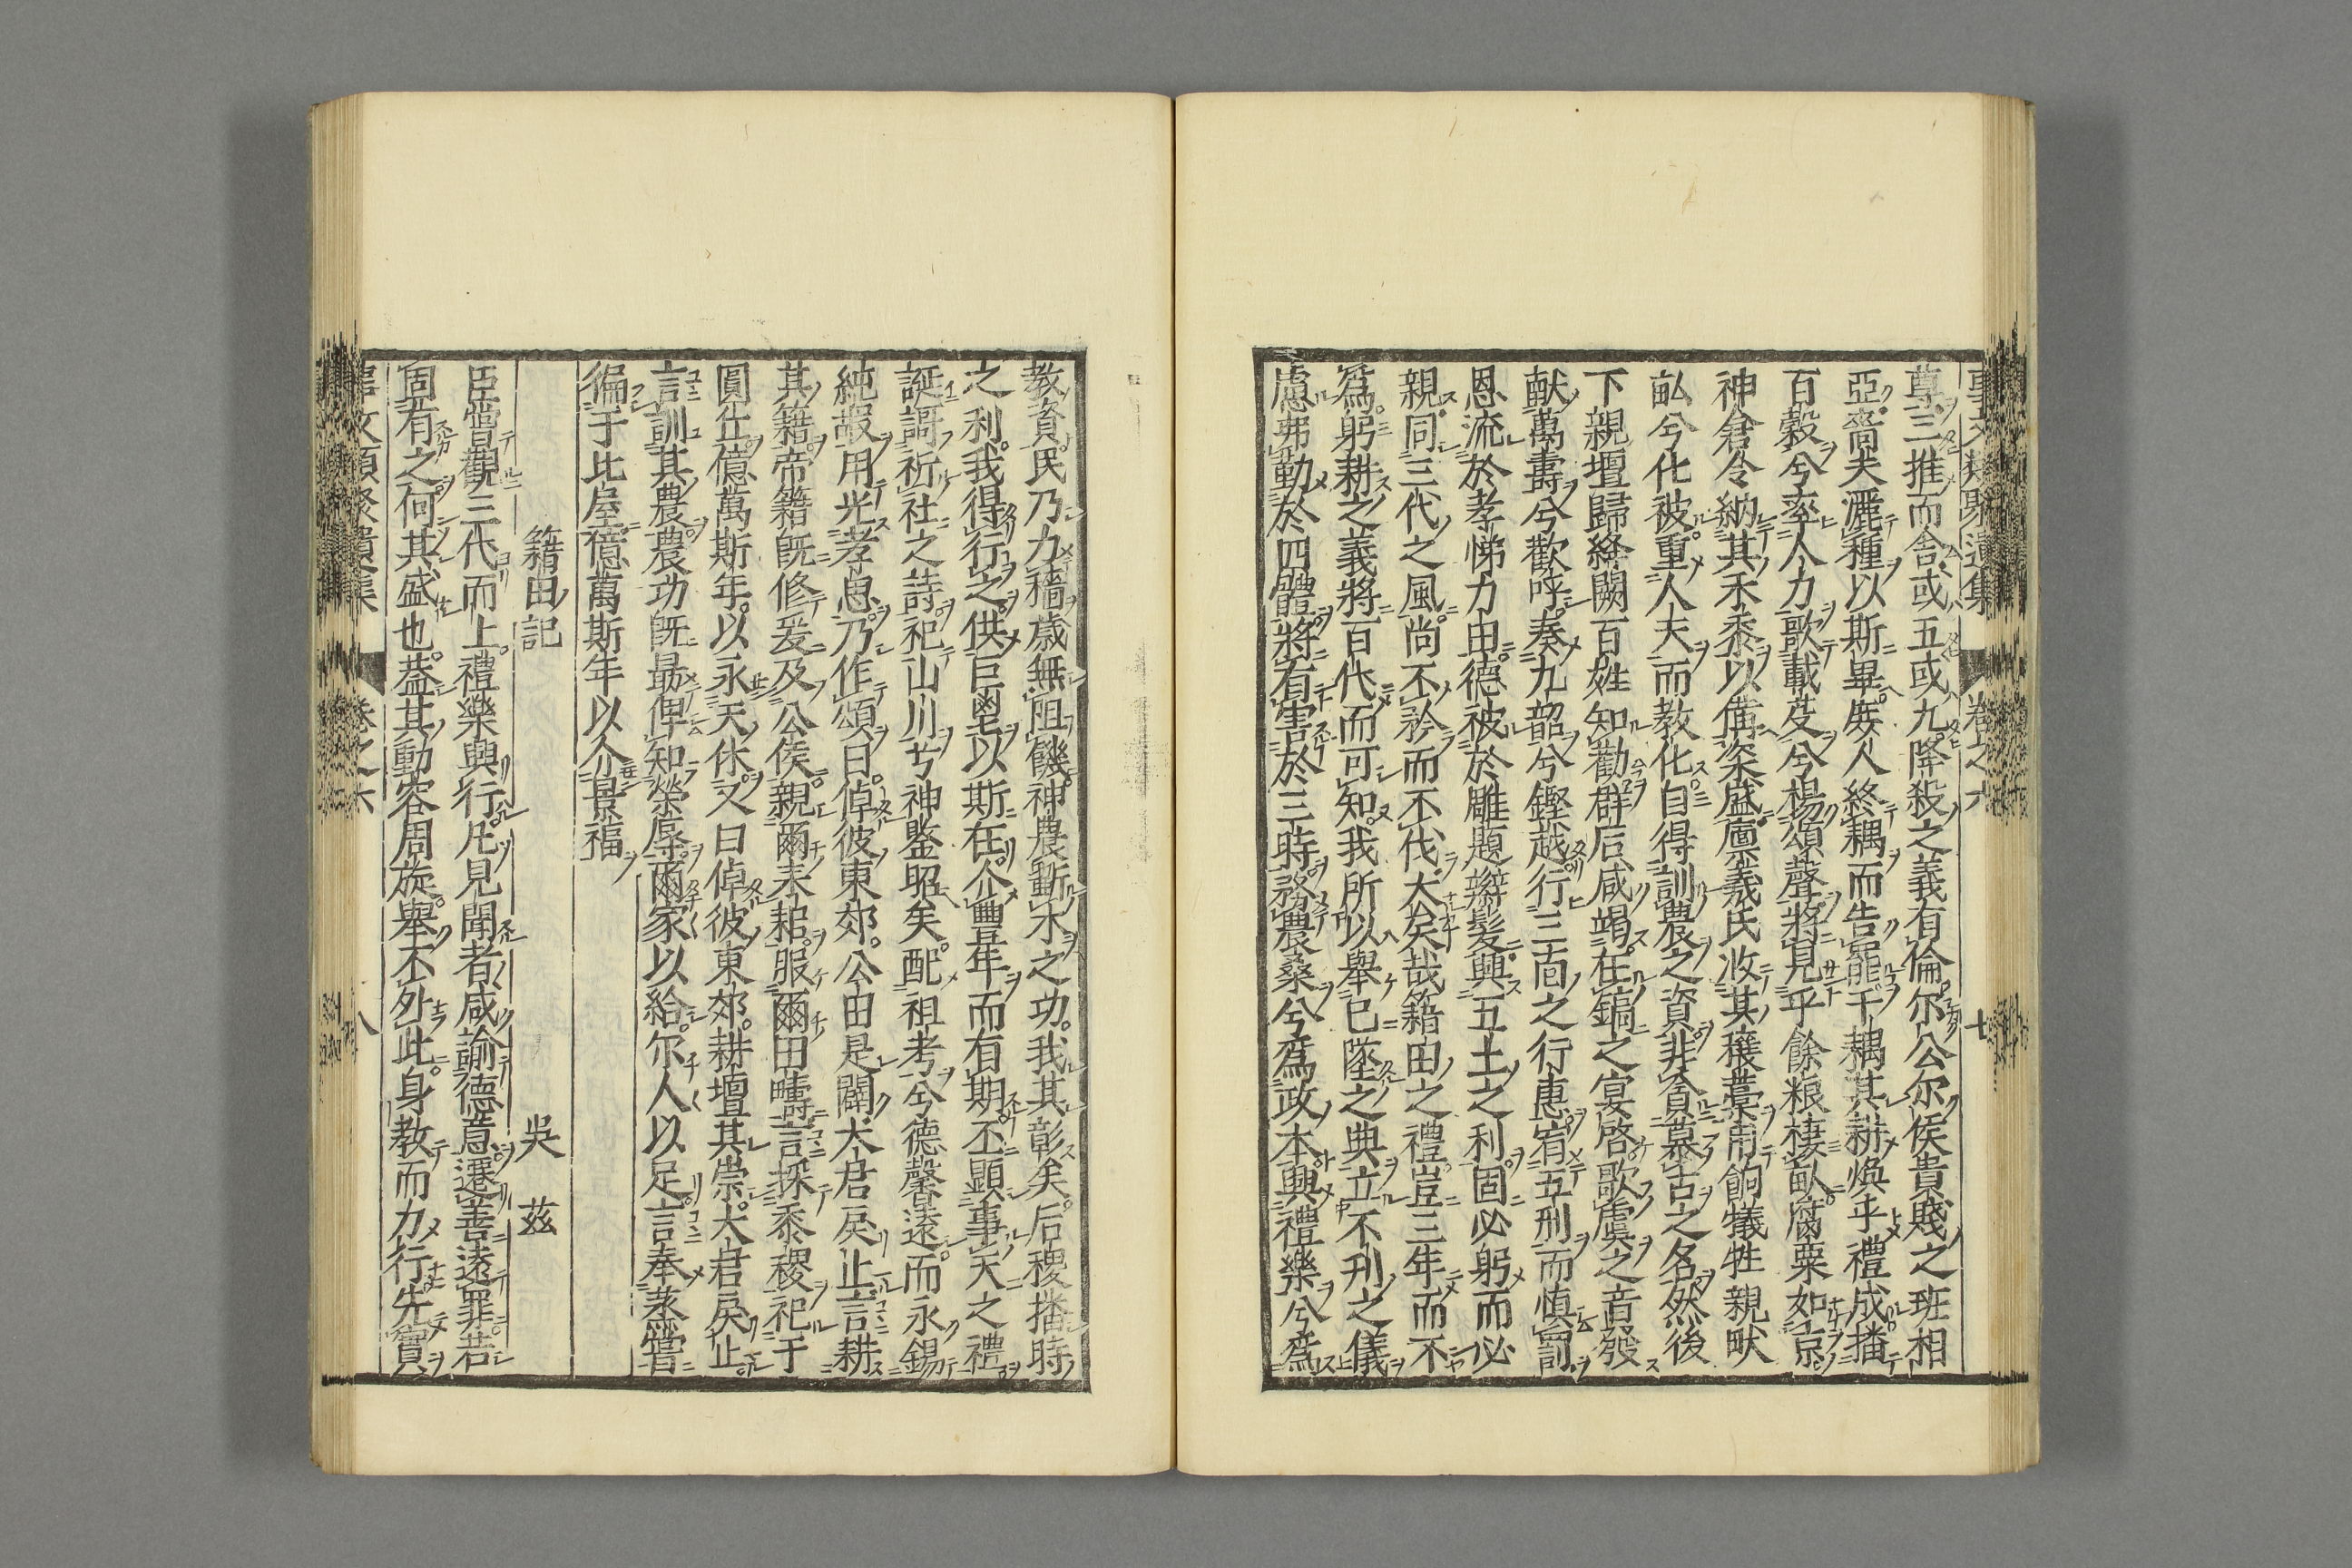 事文類聚遺集 卷之六 七
尊三推而舍或五或九降殺之義有倫尔公尔侯貴賤之班相
亞嗇夫灑種以斯畢庶人終耦而告罷千耦其耕煥乎禮成播
百穀兮率人力歌載芟兮楊頌聲將見乎餘粮棲畝腐粟如京
神倉令納其禾黍以備粢盛廩羲氏收其穰藁用餉犧牲親畎
畝兮化被重人夫而教化自得訓農之資非貪慕古之名然後
下親壇歸絳闕百姓知勸群后咸竭在鎬之宴啓歌虞之音發
献萬壽兮歡呼奏九韶兮鏗越行三宥之行惠宥五刑而慎罰
恩流於孝悌力田德被於雕題辮髮興五土之利固必躬而必
親同三代之風尚不矜而不伐大矣哉籍田之禮豈三年而不
爲躬耕之義將百代而可知我所以舉已墜之典立不刊之儀
慮弗勤於四體將有害於三時務農桑兮爲政本興禮樂兮爲
教資民乃力穡歲無阻饑神農斲木之功我其彰矣后稷播時
之利我得行之供巨鬯以斯在介豐年而有期丕顯事天之禮
誕謌祈社之詩祀山川兮神鑒昭矣配祖考兮德馨遠而永錫
純嘏用光孝息乃作頌曰倬彼東郊公田是闢大君戾止言耕
其籍帝籍旣修爰及公侯親爾耒耜服爾田疇言採黍稷祀于
圓丘億萬斯年以永天休又曰倬彼東郊耕壇其崇大君戾止
言訓其農農功旣最俾知榮辱爾家以給尔人以足言奉蒸嘗
徧于比屋億萬斯年以介景福
籍田記 吳茲
臣嘗觀三代而上禮樂興行凡見聞者咸諭德意遷善遠罪若
固有之何其盛也葢其動容周旋舉不外此身教而力行先實
事文類聚遺集 卷之六 八